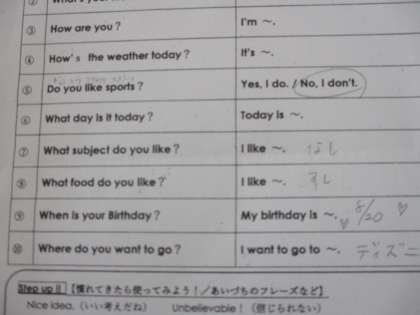 ③ How are you？ I'm ～.
④ How's the weather today？ It's ～.
⑤ Do you like sports？ Yes, I do. / No, I don't.
⑥ What day is it today？ Today is ～.
⑦ What subject do you like？ I like ～. なし
⑧ What food do you like？ I like ～. すし
⑨ When is your Birthday？ My birthday is ～. 8/20
⑩ Where do you want to go？ I want to go to ～. ディズニ
Step up!! 【慣れてきたら使ってみよう！／あいづちのフレーズなど】
Nice idea.（いい考えだね） Unbelievable！（信じられない）